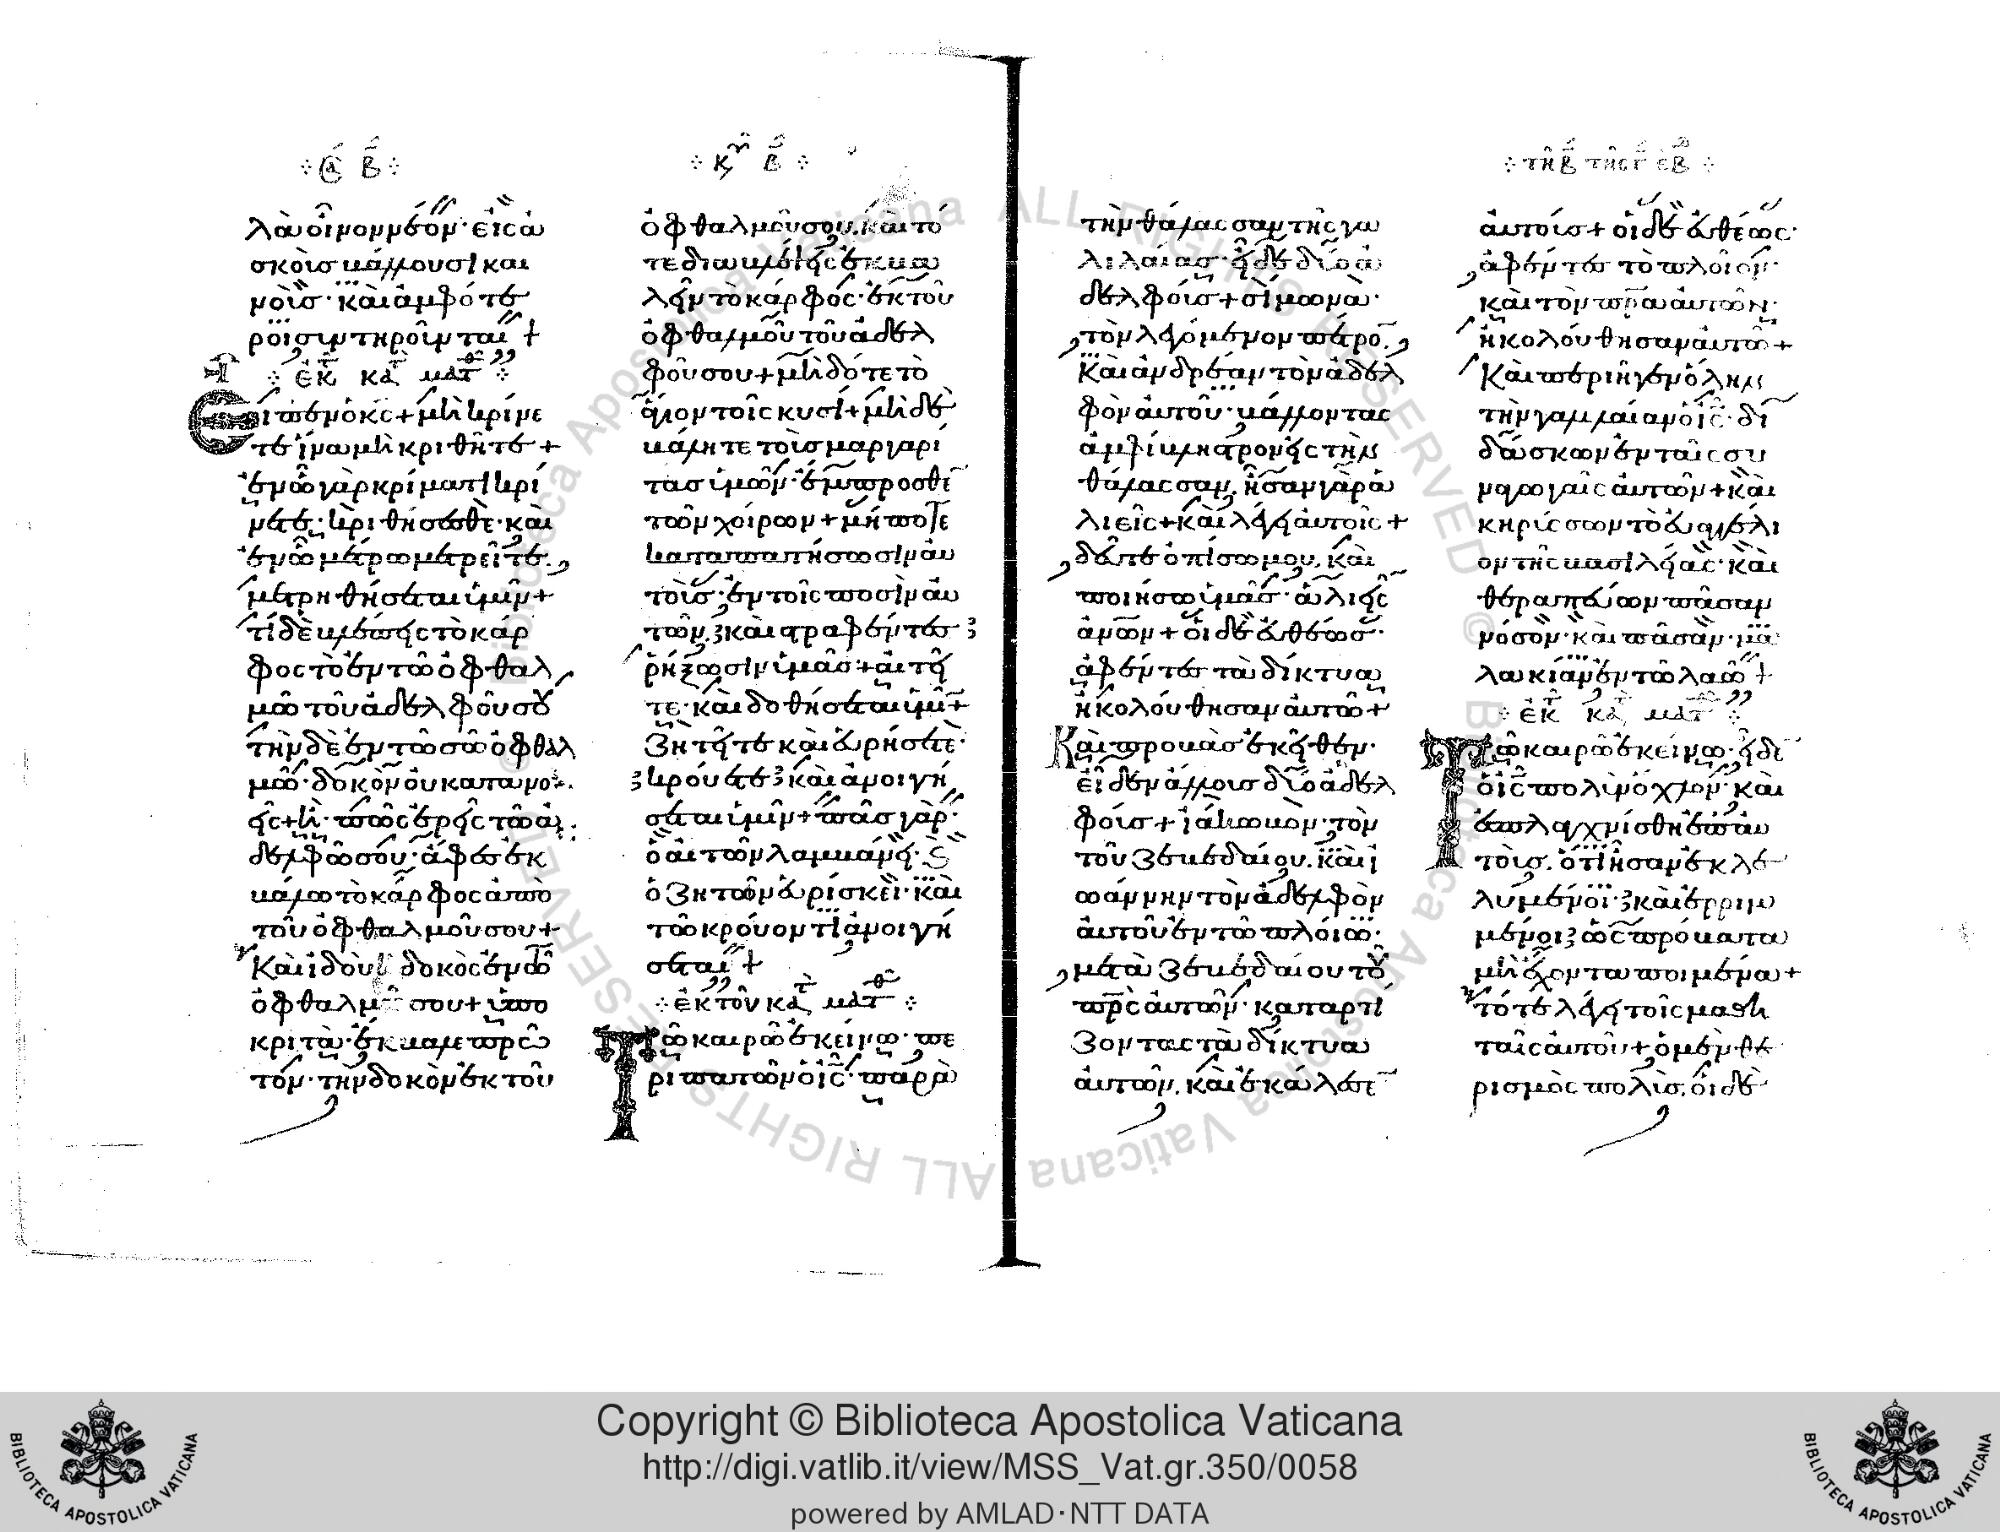 λὰ οἶνον νέον· εἰς ἀ
σκοὺς βάλλουσι και
νοὺς· καὶ ἀμφότε
ροι συντηροῦνται +
ἐκ κατ ματθ
Εἶπεν ὁ κς + μὴ κρίνε
τε ἵνα μὴ κριθῆτε +
ἐν ὧ γὰρ κρίματι κρί
νετε· κριθήσεσθε· καὶ
ἐν ὧ μέτρω μετρεῖτε.
μετρηθήσεται ὑμῖν +
τί δὲ βλέπεις τὸ κάρ
φος τὸ ἐν τῶ ὀφθαλ
μῶ τοῦ ἀδελφοῦ σου
τὴν δὲ ἐν τῶ σῶ ὀφθαλ
μῶ· δοκὸν οὐ κατανο
εῖς + ἢ· πῶς ἐρεῖς τῶ ἀ
δελφῶ σου· ἄφες ἐκ
βάλω τὸ κάρφος ἀπὸ
τοῦ ὀφθαλμοῦ σου +
Καὶ ἰδοὺ ἡ δοκὸς ἐν τῶ
ὀφθαλμῶ σου + ὑπο
κριτὰ· ἔκβαλε πρῶ
τον· τὴν δοκὸν ἐκ τοῦ
κυ Β
ὀφθαλμοῦ σου. καὶ τό
τε διαβλέψεις ἐκβα
λεῖν τὸ κάρφος· ἐκ τοῦ
ὀφθαλμοῦ τοῦ ἀδελ
φοῦ σου + μὴ δότε τὸ
ἅγιον τοῖς κυσί + μὴ δὲ
βάλητε τοὺς μαργαρί
τας ὑμῶν· ἔμπροσθεν
τῶν χοίρων + μήποτε
καταπατήσωσιν αὐ
τούς· ἐν τοῖς ποσὶν αὐ
τῶν. καὶ στραφέντες
ῥήξωσιν ὑμᾶς + αἰτεῖ
τε· καὶ δοθήσεται ὑμῖν +
Ζητεῖτε καὶ εὑρήσετε·
κρούετε καὶ ἀνοιγή
σεται ὑμῖν + πᾶς γὰρ·
ὁ αἰτῶν λαμβάνει·
ὁ ζητῶν εὑρίσκει· καὶ
τῶ κρούοντι ἀνοιγή
σεται +
ἐκ τοῦ κατ ματθ
Τῶ καιρῶ ἐκείνω· πε
ριπατῶν ὁ ις· παρὰ
τὴν θάλασσαν τῆς γα
λιλαίας· εἶδε δύο ἀ
δελφούς + σίμωνα·
τὸν λεγόμενον πέτρον.
Καὶ ἀνδρέαν τὸν ἀδελ
φὸν αὐτοῦ· βάλλοντας
ἀμφίβληστρον εἰς τὴν
θάλασσαν. ἦσαν γὰρ ἁ
λιεῖς + καὶ λέγει αὐτοῖς +
δεῦτε ὀπίσω μου. καὶ
ποιήσω ὑμᾶς· ἁλιεῖς
ἀνων + οἱ δὲ εὐθέως·
ἀφέντες τὰ δίκτυα
ἠκολούθησαν αὐτῶ +
Καὶ προβὰς ἐκεῖθεν·
εἶδεν ἄλλους δύο ἀδελ
φούς + ἰάκωβον· τὸν
τοῦ Ζεβεδαίου. καὶ ἰ
ωάννην τὸν ἀδελφὸν
αὐτοῦ ἐν τῶ πλοίω·
μετὰ Ζεβεδαίου τοῦ
πρς αὐτῶν· καταρτί
Ζοντας τὰ δίκτυα
αὐτῶν. καὶ ἐκάλεσεν
τῆ Β τῆς
αὐτούς + οἱ δὲ εὐθέως·
ἀφέντες τὸ πλοῖον·
καὶ τὸν πρα αὐτῶν·
ἠκολούθησαν αὐτῶ +
Καὶ περιῆγεν ὅλην
τὴν γαλιλαίαν ὁ ις· δι
δάσκων ἐν ταῖς συ
ναγωγαῖς αὐτῶν + καὶ
κηρύσσων τὸ εὐαγγέλι
ον τῆς βασιλείας· καὶ
θεραπεύων πᾶσαν
νόσον· καὶ πᾶσαν· μα
λακίαν ἐν τῶ λαῶ +
ἐκ κατ ματθ
Τῶ καιρῶ ἐκείνω· εἶδεν
ὁ ις πολὺν ὄχλον· καὶ
ἐσπλαγχνίσθη ἐπ αὐ
τοῖς. ὅτι ἦσαν ἐκλε
λυμένοι· καὶ ἐρριμ
μένοι ὡς πρόβατα
μὴ ἔχοντα ποιμένα +
τότε λέγει τοῖς μαθη
ταῖς αὐτοῦ + ὁ μὲν θε
ρισμὸς πολύς. οἱ δὲ
Biblioteca Apostolica Vaticana ALL RIGHTS RESERVED ©
Biblioteca Apostolica Vaticana ALL RIGHTS RESERVED ©
Copyright © Biblioteca Apostolica Vaticana
http://digi.vatlib.it/view/MSS_Vat.gr.350/0058
powered by AMLAD·NTT DATA
BIBLIOTECA APOSTOLICA VATICANA
BIBLIOTECA APOSTOLICA VATICANA